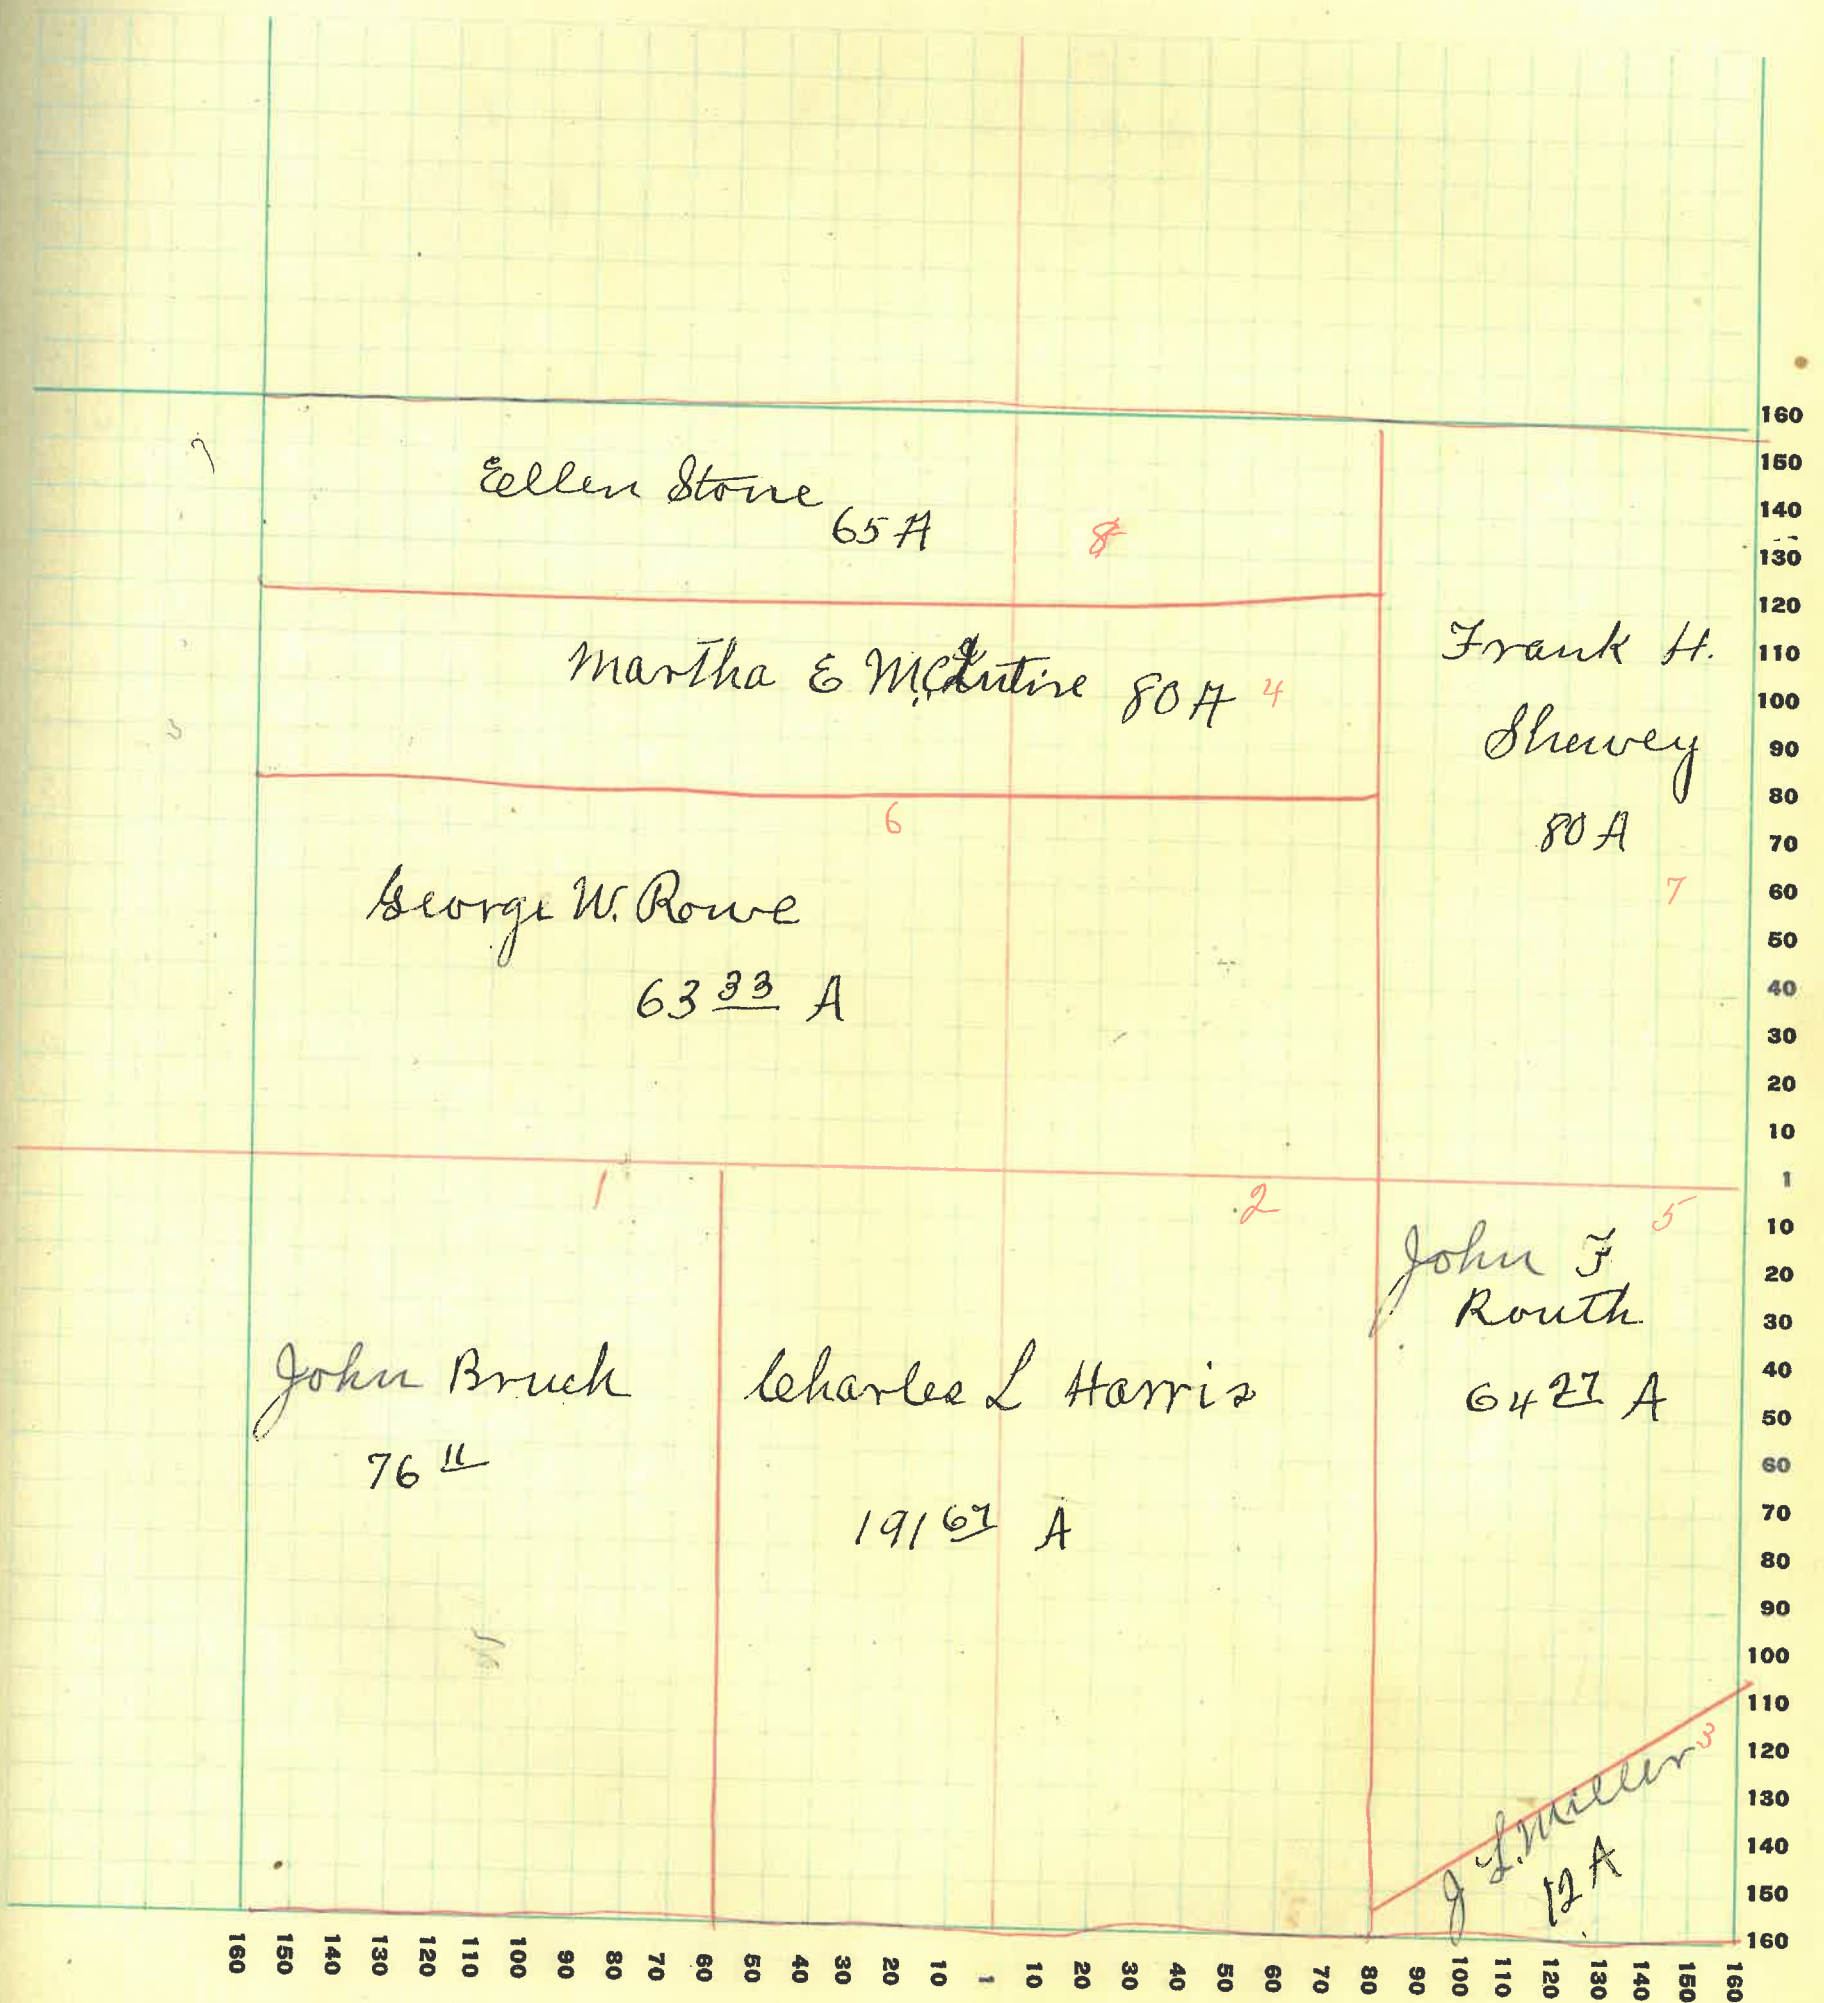 Eellen Stone
65 A
8
Martha E McIntire 80 A 4
Frank H.
Shewey
80 A
7
6
George W. Rowe
63 33 A
1
2
5
John F
Routh
64 27 A
John Bruck
76 11
Charles L Harris
191 67 A
3
J L. Miller
12 A
160
150
140
130
120
110
100
90
80
70
60
50
40
30
20
10
1
10
20
30
40
50
60
70
80
90
100
110
120
130
140
150
160
160 150 140 130 120 110 100 90 80 70 60 50 40 30 20 10 1 10 20 30 40 50 60 70 80 90 100 110 120 130 140 150 160